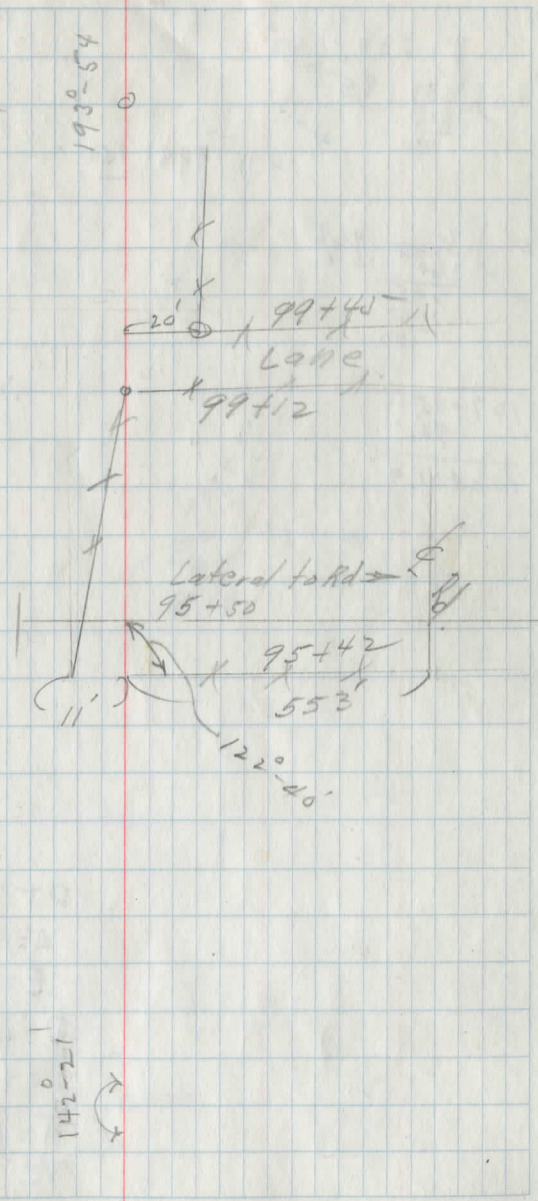 193°-54
20'
99+45
Lane
99+12
Lateral to Rd →
℄
Rd.
95+50
95+42
11'
553'
122°-40'
142°-21'